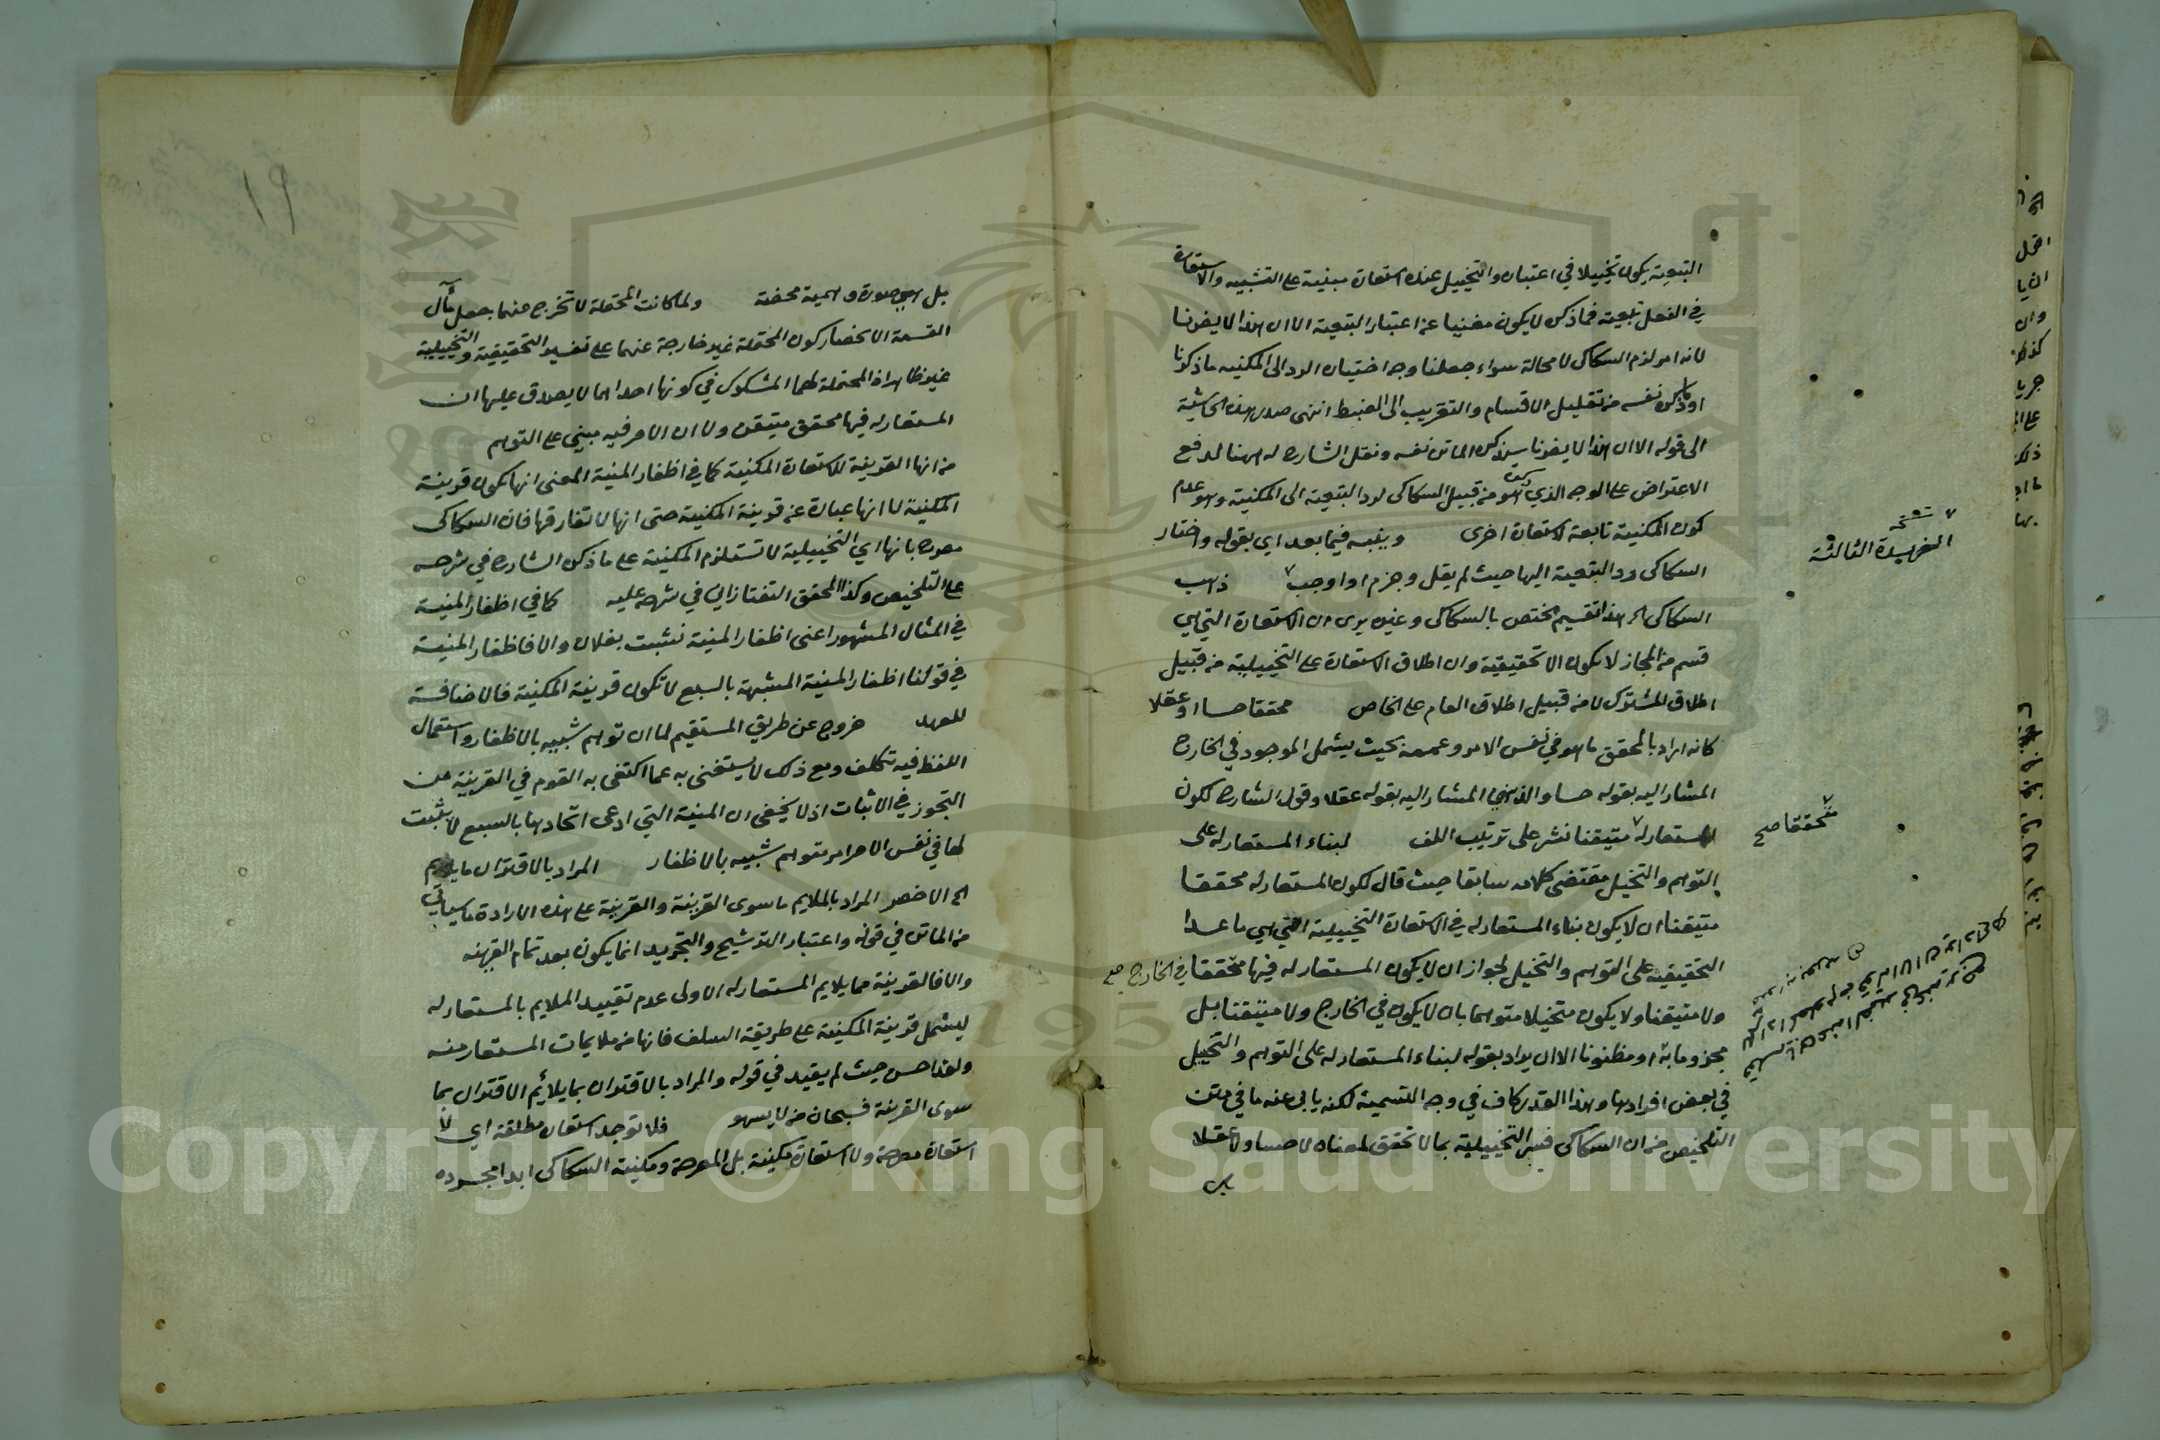 التبعية يكون تخييلا في اعتباره والتخييل عنده استعارة مبنية على التشبيه والاستعارة
في الفعل تبعية فما ذكره لا يكون مغنيا عن اعتبار التبعية الا ان هذا لا يضرنا
لانه امر لزم السكاكي لا محالة سواء جعلنا وجه اختياره الرد الى المكنيه ما ذكرنا
او ما ذكره نفسه من تقليل الاقسام والتقريب الى الضبط انتهى صدر هذه الحاشية
الى قوله الا ان هذا لا يضرنا سيذكره الماتن نفسه ونقل الشارح له ههنا لدفع
الاعتراض على الوجه الذي ذكره هو من قبيل السكاكي لرد التبعية الى المكنية وهو عدم
كون المكنية تابعة لاستعارة اخرى وينبه فيما بعد اي بقوله واختار
السكاكي رد التبعية اليها حيث لم يقل وجزم او اوجب ذهب
الفريدة الثالثة
السكاكي الخ هذا تقسيم مختص بالسكاكي وغيره يرى ان الاستعارة التي هي
قسم من المجاز لا تكون الا تحقيقية وان اطلاق الاستعارة على التخييلية من قبيل
اطلاق المشترك لا من قبيل اطلاق العام على الخاص محققا حسا او عقلا
كانه اراد بالمحقق ما هو في نفس الامر وعممه بحيث يشمل الموجود في الخارج
المشار اليه بقوله حسا والذهني المشار اليه بقوله عقلا وقول الشارح لكون
المستعار له متيقنا نشر على ترتيب اللف لبناء المستعار له على
محققا صح
التوهم والتخيل مقتضى كلامه سابقا حيث قال لكون المستعار له محققا
متيقنا ان لا يكون بناء المستعار له في الاستعارة التخييلية التي هي ما عدا
التحقيقية على التوهم والتخيل لجواز ان لا يكون المستعار له فيها محققا في الخارج صح
ولا متيقنا ولا يكون متخيلا متوهما بان لا يكون في الخارج ولا متيقنا بل
مجزوما به او مظنونا الا ان يراد بقوله لبناء المستعار له على التوهم والتخيل
في بعض افرادها وهذا القدر كاف في وجه التسمية لكنه يابى عنه ما في متن
التلخيص من ان السكاكي فسر التخييلية بما لا تحقق لمعناه لا حسا ولا عقلا
بل
١٩
بل هي صورة وهمية محضة ولما كانت المحتملة لا تخرج عنهما بجعل مآل
القسمة الانحصار كون المحتملة غير خارجة عنهما على تفسير التحقيقية والتخييلية
غير ظاهر اذ المحتملة لهما المشكوك في كونها احداهما لا يصدق عليها ان
المستعار له فيها محقق متيقن ولا ان الامر فيه مبني على التوهم
من انها القرينة للاستعارة المكنية كما في اظفار المنية المعنى انها تكون قرينة
المكنية لا انها عبارة عن قرينة المكنية حتى انها لا تفارقها فان السكاكي
مصرح بانها اي التخييلية لا تستلزم المكنية على ما ذكره الشارح في شرحه
على التلخيص وكذا المحقق التفتازاني في شرحه عليه كما في اظفار المنية
في المثال المشهور اعني اظفار المنية نشبت بفلان والا فاظفار المنية
في قولنا اظفار المنية المشبهة بالسبع لا تكون قرينة المكنية فالاضافة
للعهد خروج عن طريق المستقيم لما ان توهم شبيه بالاظفار واستعمال
اللفظ فيه تكلف ومع ذلك لا يستغنى به عما اكتفى به القوم في القرينة من
التجوز في الاثبات اذ لا يخفى ان المنية التي ادعى اتحادها بالسبع لا يثبت
لها في نفس الامر امر متوهم شبيه بالاظفار المراد بالاقتران ما يلايم
الخ الاخصر المراد بالملايم ما سوى القرينة والقرينة على هذه الارادة ما سياتي
من الماتن في قوله واعتبار الترشيح والتجريد انما يكون بعد تمام القرينه
والا فالقرينة مما يلايم المستعار له الاولى عدم تقييد الملايم بالمستعار له
ليشمل قرينة المكنية على طريقة السلف فانها من ملايمات المستعار منه
ولقد احسن حيث لم يقيد في قوله والمراد بالاقتران بما يلائم الاقتران بما
سوى القرينة فسبحان من لا يسهو فلا توجد استعارة مطلقة اي لا
استعارة مصرحة ولا استعارة مكنية بل المصرحة ومكنية السكاكي ابدا مجرده
Copyright © King Saud University
1957